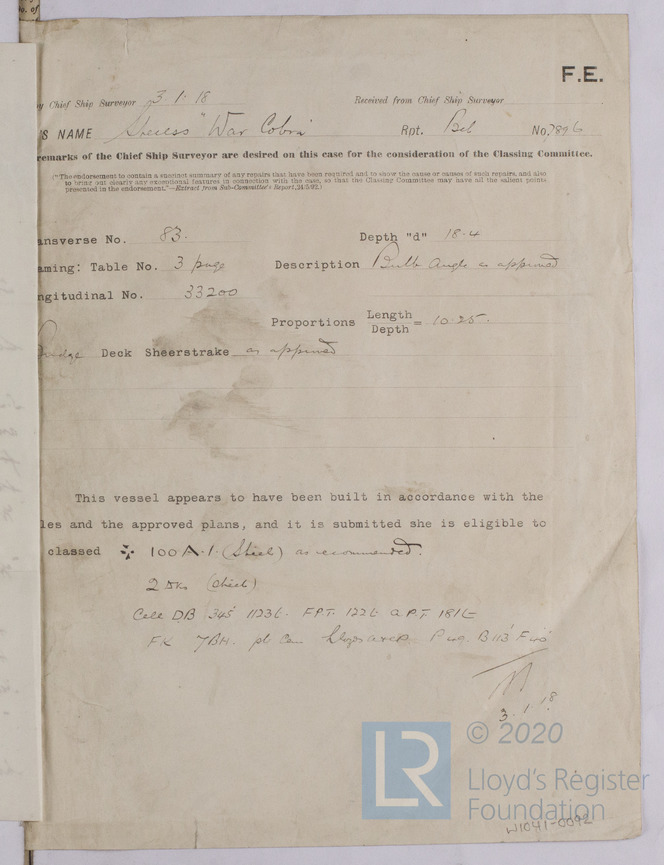 F.E.
by Chief Ship Surveyor 3·1·18 Received from Chief Ship Surveyor
'S NAME "War Cobra" Rpt. Bel No. 7896
remarks of the Chief Ship Surveyor are desired on this case for the consideration of the Classing Committee.
("The endorsement to contain a succinct summary of any repairs that have been required and to show the cause or causes of such repairs, and also
to bring out clearly any exceptional features in connection with the case, so that the Classing Committee may have all the salient points
presented in the endorsement."—Extract from Sub-Committee's Report, 24/5/92.)
ansverse No. 83. Depth "d" 18·4
aming: Table No. 3 page Description Bulb Angle as approved
ngitudinal No. 33200
Proportions Length/Depth = 10·25.
Bridge Deck Sheerstrake as approved
This vessel appears to have been built in accordance with the
les and the approved plans, and it is submitted she is eligible to
classed 100 A·1· (Steel) as recommended.
2 Dks (Steel)
Cell DB 345' 1123t. F.P.T. 122t A.P.T. 181t
FK 7BH. Lloyds A & C P 40. B 113' F 40'
3·1·18
LR © 2020
Lloyd's Register
Foundation
W1041-0092